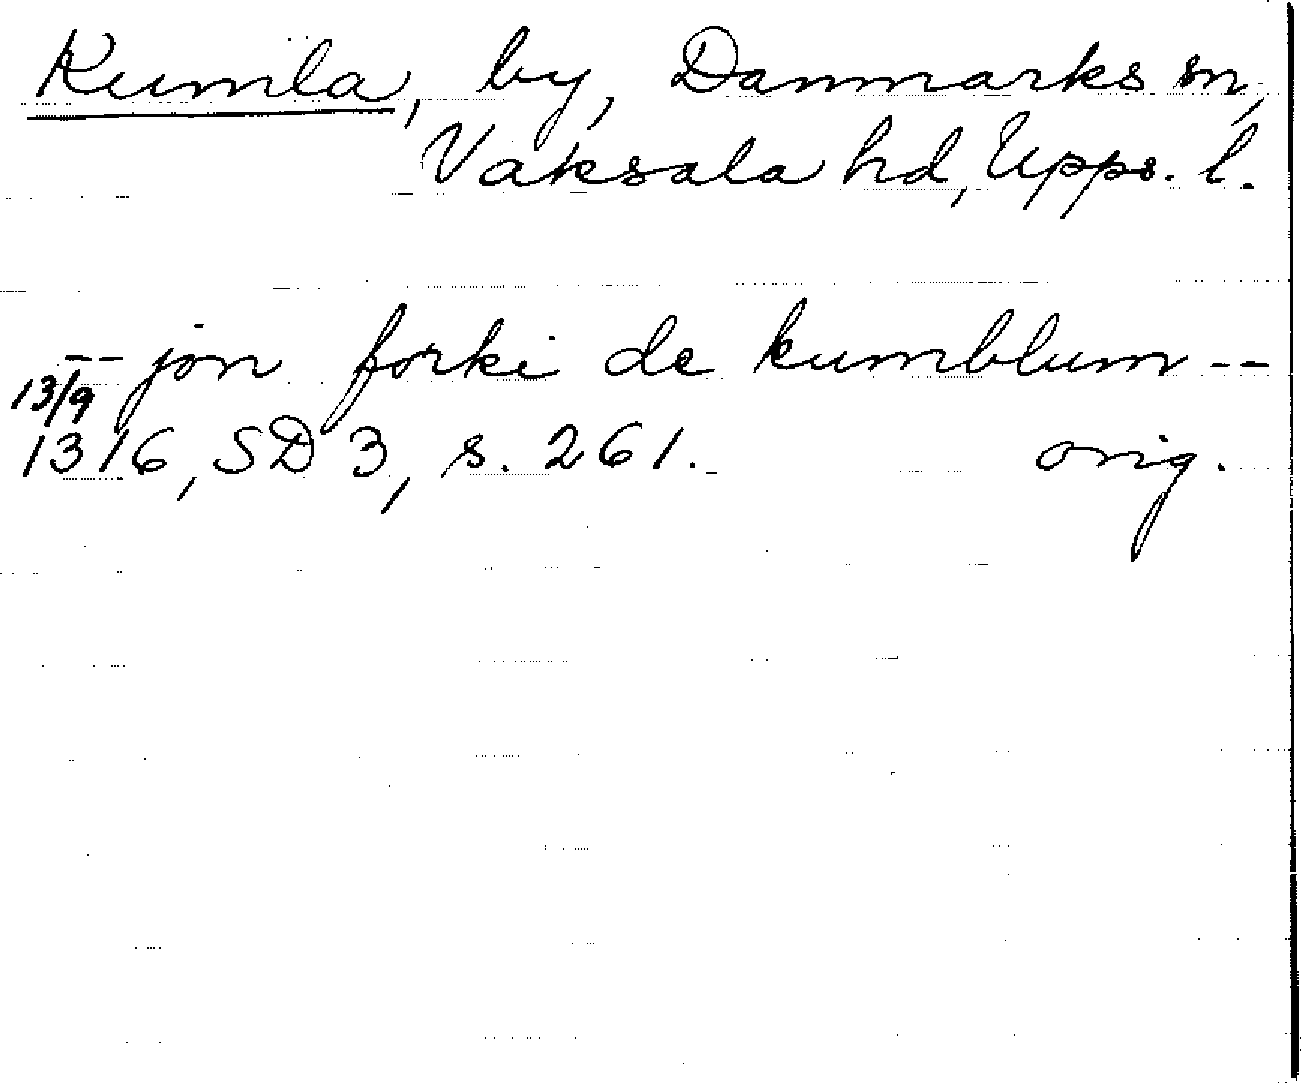 Kumla, by, Danmarks sn,
Vaksala hd, Upps. l.
-- jon forki de kumblum --
13/9
1316, SD 3, s. 261. orig.